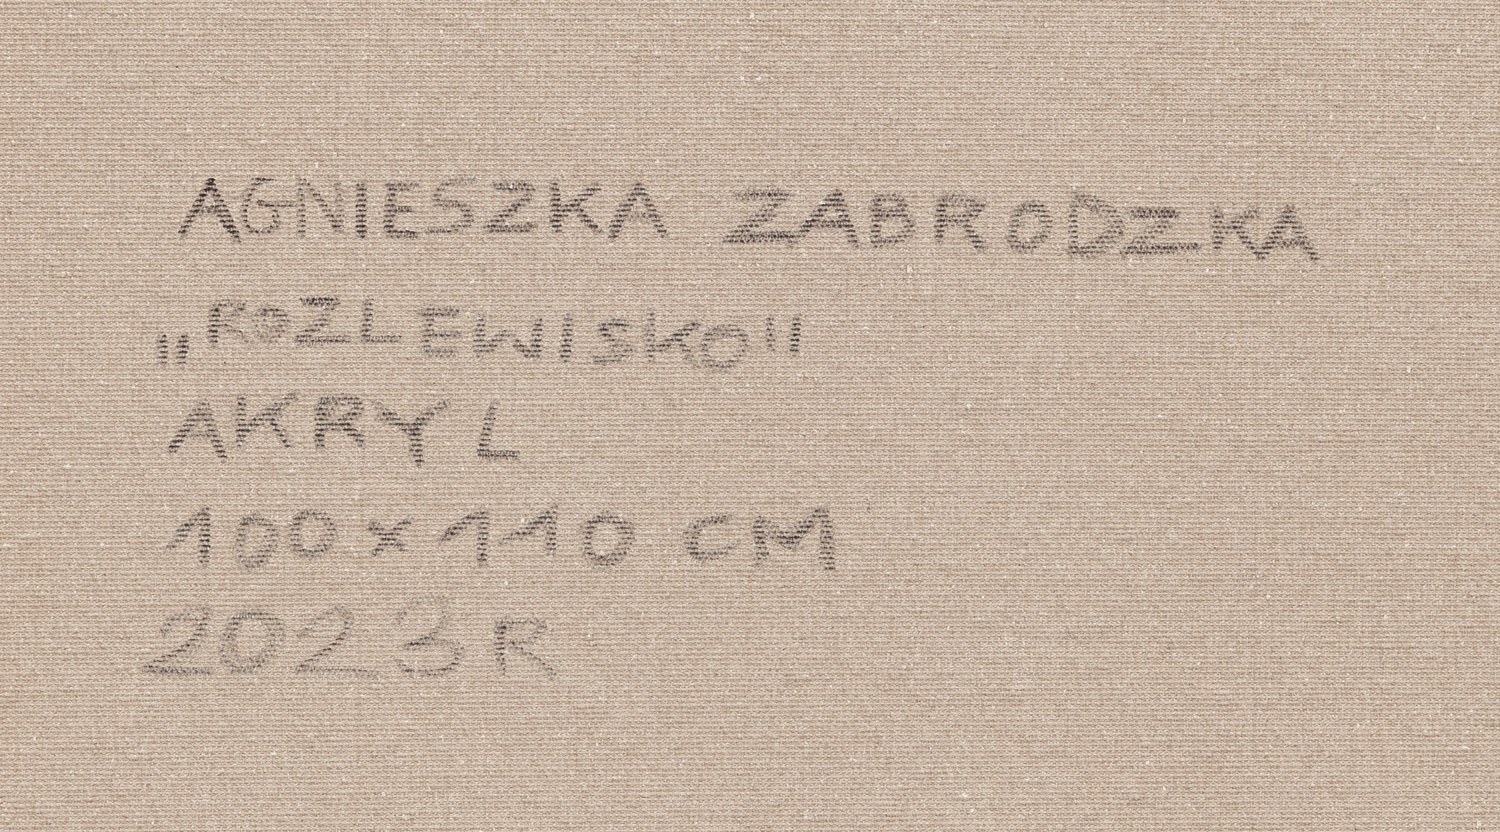 AGNIESZKA ZABRODZKA
„ROZLEWISKO"
AKRYL
100x110 CM
2023R